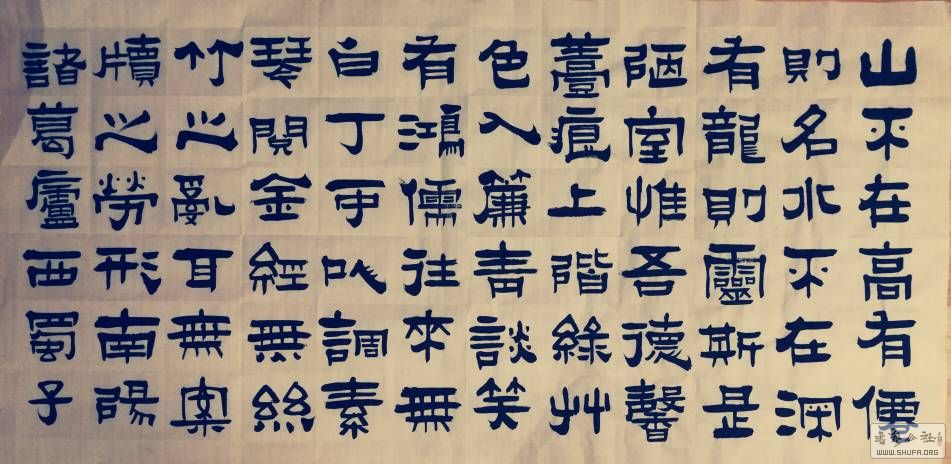 山不在高有僊
則名水不在深
有龍則靈斯是
陋室惟吾德馨
薹痕上階綠艸
色入簾青談笑
有鴻儒往來無
白丁可以調素
琴閱金經無絲
竹之亂耳無案
牘之勞形南陽
諸葛廬西蜀子
WWW.SHUFA.ORG